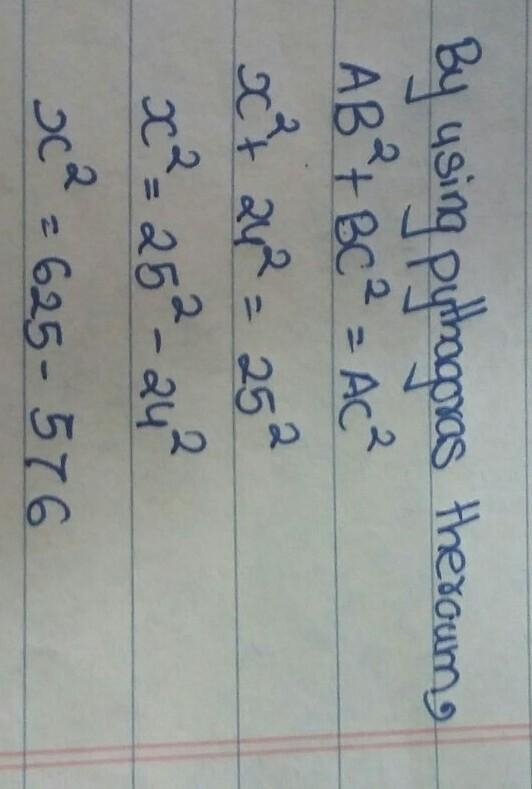 By using pythagoras theroum,
AB² + BC² = AC²
x² + 24² = 25²
x² = 25² - 24²
x² = 625 - 576